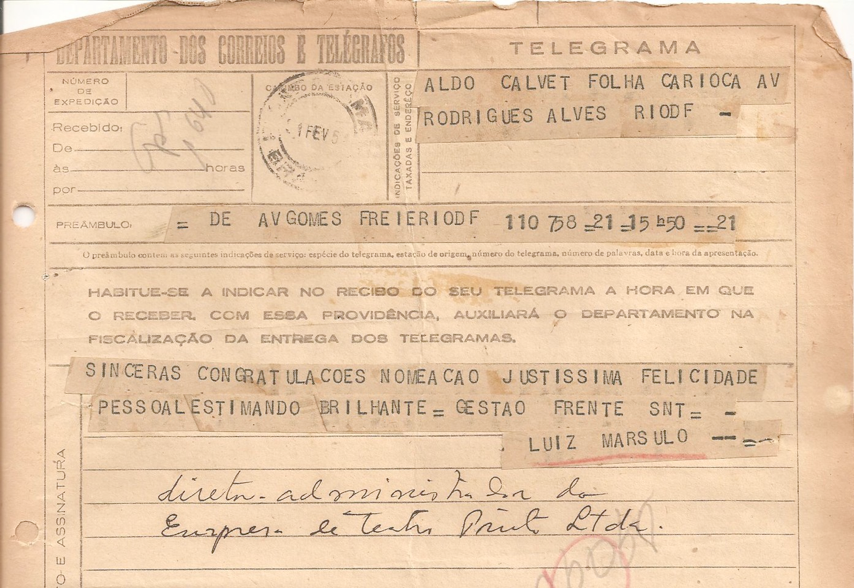 DEPARTAMENTO DOS CORREIOS E TELÉGRAFOS
TELEGRAMA
NÚMERO
DE
EXPEDIÇÃO
CARIMBO DA ESTAÇÃO
INDICAÇÕES DE SERVIÇO
TAXADAS E ENDERÊÇO
ALDO CALVET FOLHA CARIOCA AV
RODRIGUES ALVES RIODF -
Recebido:
De
às horas
por
1 FEV 5
PREÂMBULO:
= DE AVGOMES FREIERIODF 110 758 =21 =15 h50 ==21
O preâmbulo contém as seguintes indicações de serviço: espécie do telegrama, estação de origem, número do telegrama, número de palavras, data e hora da apresentação.
HABITUE-SE A INDICAR NO RECIBO DO SEU TELEGRAMA A HORA EM QUE
O RECEBER. COM ESSA PROVIDÊNCIA, AUXILIARÁ O DEPARTAMENTO NA
FISCALIZAÇÃO DA ENTREGA DOS TELEGRAMAS.
SINCERAS CONGRATULACOES NOMEACAO JUSTISSIMA FELICIDADE
PESSOALESTIMANDO BRILHANTE= GESTAO FRENTE SNT= -
LUIZ MARSULO --=-
TO E ASSINATURA
diretor-administrador da
Empresa de teatro Pinto Ltda.